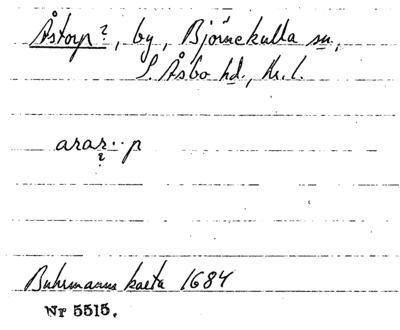 Åstorp ?, by, Björnekulla sn,
S. Åsbo hd., Kr. l.
arar··p
?
Buhrmanns karta 1684
Nr 5515.